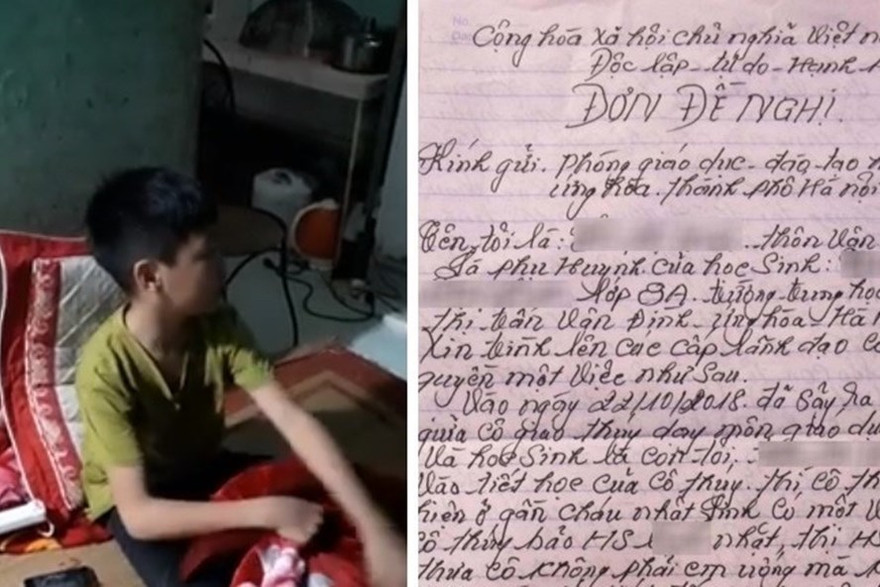 No.
Cộng hòa xã hội chủ nghĩa Việt n
Độc lập - tự do - Hạnh
ĐƠN ĐỀ NGHỊ.
Kính gửi. Phòng giáo dục - đào tạo
ứng Hòa. thành phố Hà nội
Tên tôi là: thôn Vân
Là phụ Huynh của học Sinh:
lớp 8A. trường trung học
thị trấn Vân Đình - ứng hòa - Hà
Xin trình lên các cấp lãnh đạo có
quyền một việc như sau.
Vào ngày 22/10/2018. đã sảy ra
giữa cô giáo thủy dạy môn giáo dục
Và học Sinh là con tôi,
Vào tiết học của cô thủy. thì cô
hiện ở gần cháu nhất có một
cô thủy bảo HS nhặt, thì HS
thưa cô không phải em uống mà